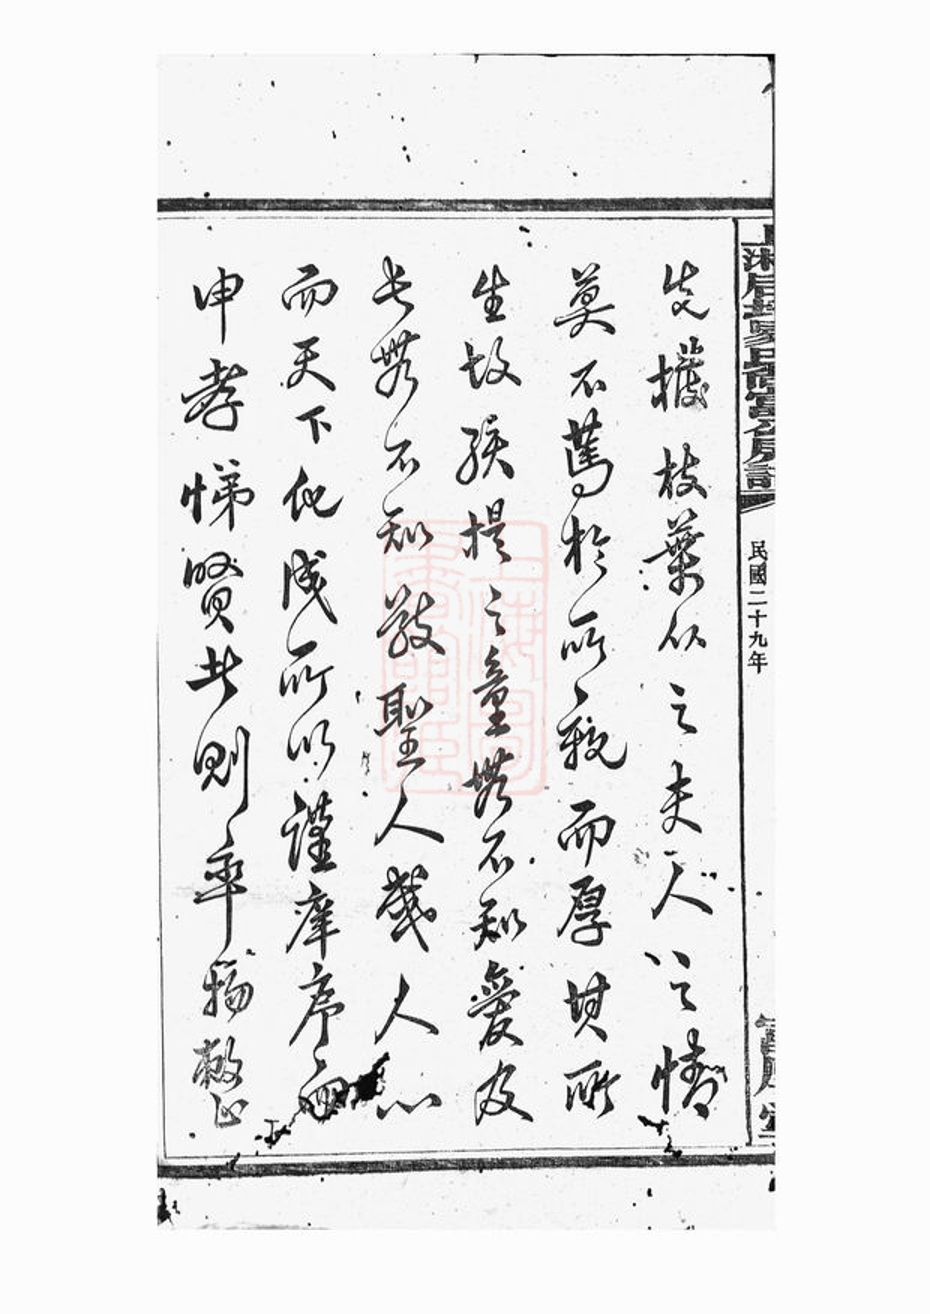 民國二十九年
先撥枝葉從之夫人之情
莫不篤於所親而厚其所
生故孩提之童無不知愛及
長無不知敬聖人感人心
而天下化成所以謹庠序而
申孝悌賢者則率
上海圖書館藏